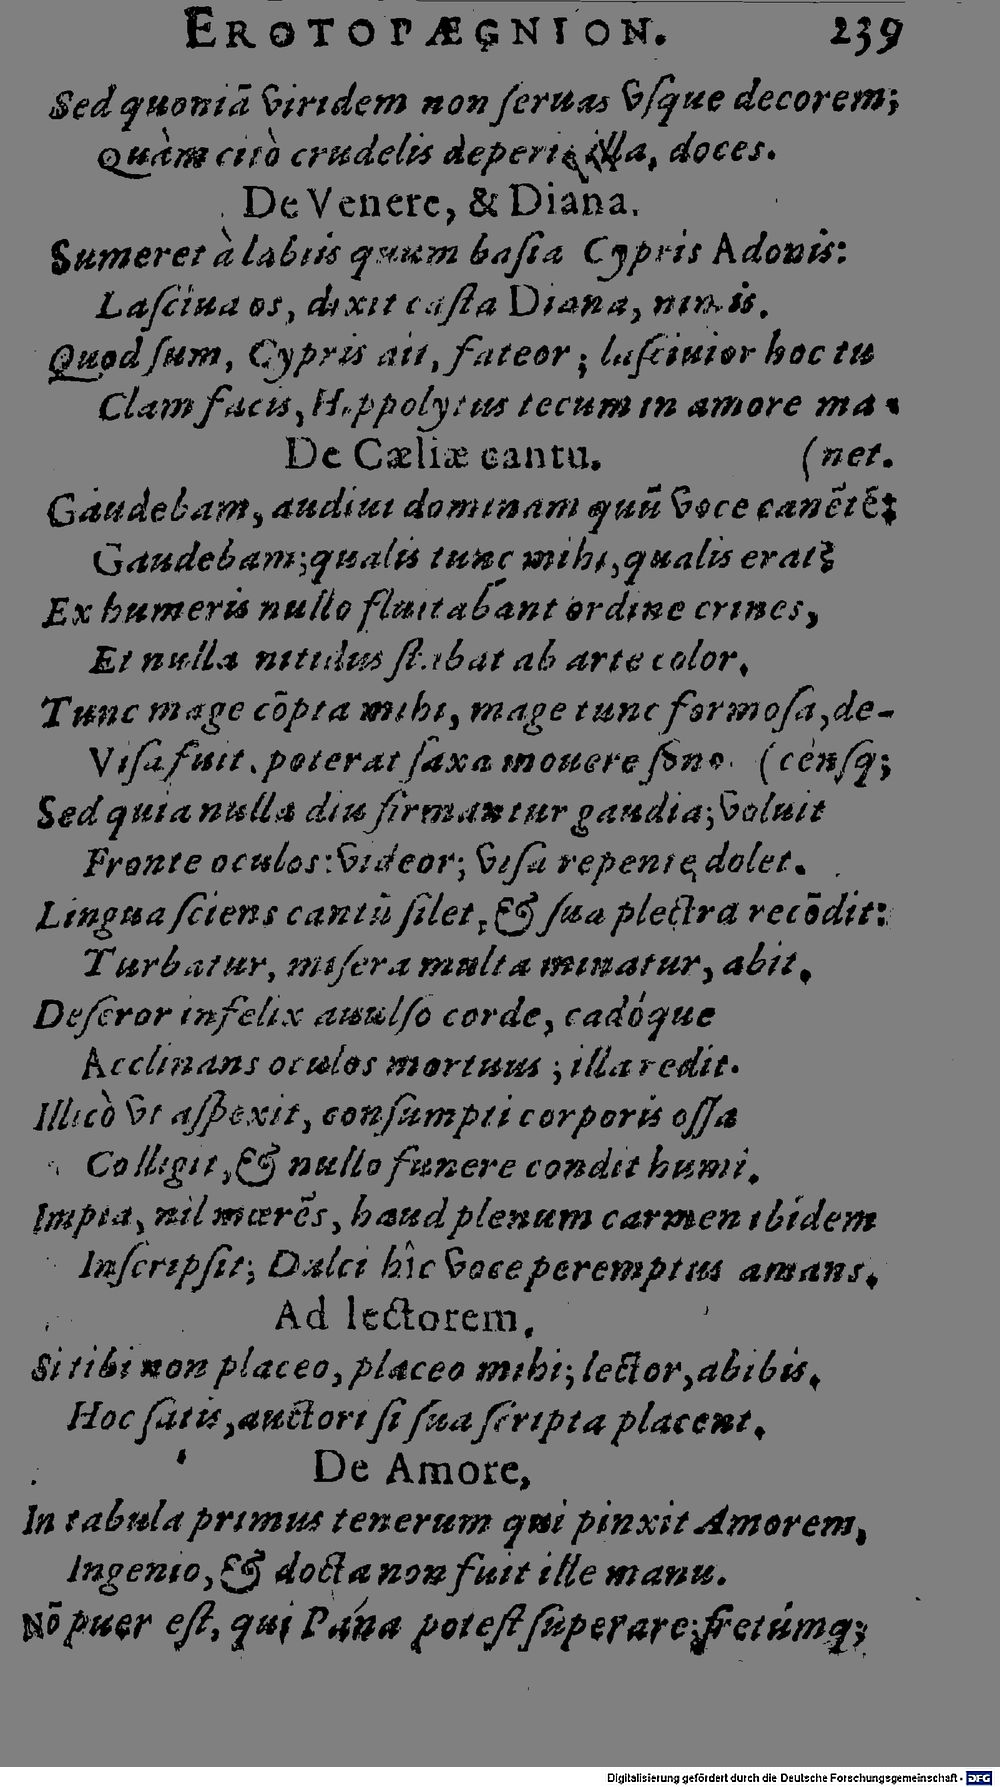 EROTOPÆGNION. 239
Sed quoniā viridem non ſeruas vſque decorem;
Quàm citò crudelis deperit illa, doces.
De Venere, & Diana.
Sumeret à labiis quum baſia Cypris Adonis:
Laſciua es, dixit caſta Diana, nimis.
Quod ſum, Cypris ait, fateor; laſciuior hoc tu
Clam facis, Hippolytus tecum in amore ma-
De Cæliæ cantu. (net.
Gaudebam, audiui dominam quū voce canētē:
Gaudebam; qualis tunc mihi, qualis erat?
Ex humeris nullo fluitabant ordine crines,
Et nulla nitidus ſtabat ab arte color.
Tunc mage cōpta mihi, mage tunc formoſa, de-
Viſa fuit. poterat ſaxa mouere ſono. (cènſq;
Sed quia nulla diu firmantur gaudia; voluit
Fronte oculos: videor; viſa repente dolet.
Lingua ſciens cantū ſilet, & ſua plectra recōdit:
Turbatur, miſera multa minatur, abit.
Deſeror infelix auulſo corde, cadóque
Acclinans oculos mortuus; illa redit.
Illicò vt aſpexit, conſumpti corporis oſſa
Colligit, & nullo funere condit humi.
Impia, nil mœrēs, haud plenum carmen ibidem
Inſcripſit; Dulci hîc voce peremptus amans.
Ad lectorem.
Si tibi non placeo, placeo mihi; lector, abibis.
Hoc ſatis, auctori ſi ſua ſcripta placent.
De Amore,
In tabula primus tenerum qui pinxit Amorem,
Ingenio, & docta non fuit ille manu.
Nō puer eſt, qui Pána poteſt ſuperare; fretúmq;
Digitalisierung gefördert durch die Deutsche Forschungsgemeinschaft - DFG